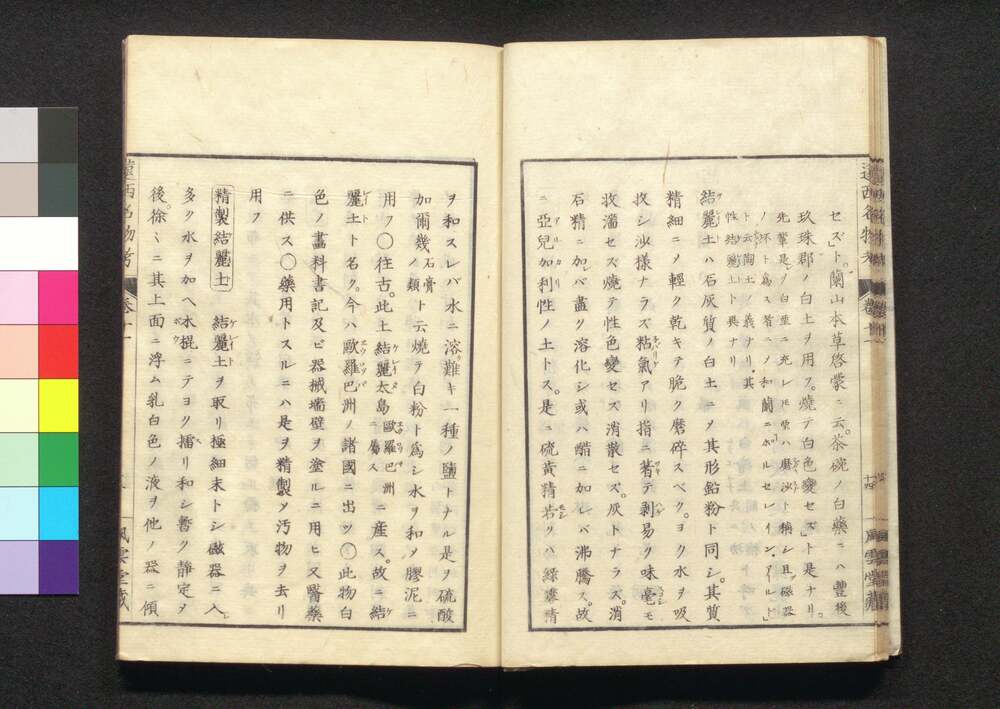 セズ」ト。蘭山本草啓蒙ニ云。茶碗ノ白藥ニハ豐後
玖珠郡ノ白土ヲ用フ。燒テ白色變セズ」ト是ナリ。
先輩是ヲ白堊ニ充レ
ト云陶土ノ義ナリ。其
性結麗土ト異ナリ
結麗土ハ石灰質ノ白土ニ〆其形鉛粉ト同シ。其質
精細ニ〆輕ク乾キテ脆ク磨碎スベク。ヨク水ヲ吸
收シ沙様ナラズ粘氣アリ指ニ著テ剥易ク味毫モ
收濇セズ燒テ性色變セズ消散セズ。灰トナラズ。消
石精ニ加レバ盡ク溶化シ或ハ醋ニ加レバ沸騰ス。故
ニ亞兒加利性ノ土トス。是ニ硫黄精若クハ緑礬精
遠西名物考
卷十一
十四
風雲堂藏
ヲ和スレバ水ニ溶難キ一種ノ鹽トナル是ヲ硫酸
加爾幾石膏ノ類ト云燒テ白粉ト爲シ水ヲ和〆膠泥ニ
用フ〇往古。此土結麗太島歐羅巴洲ニ屬スニ産ス。故ニ結
麗土ト名ク。今ハ歐羅巴洲ノ諸國ニ出ツ〇此物白
色ノ畫料書記及ビ器械墻壁ヲ塗ルニ用ヒ又醫藥
ニ供ス〇藥用トスルニハ是ヲ精製〆汚物ヲ去リ
用フ
精製結麗土 結麗土ヲ取リ極細末トシ磁器ニ入
多ク水ヲ加ヘ木提ニテヨク擂リ和シ暫ク靜定〆
後。徐々ニ其上面ニ浮ム乳白色ノ液ヲ他ノ器ニ傾
遠西名物考
卷十一
風雲堂藏